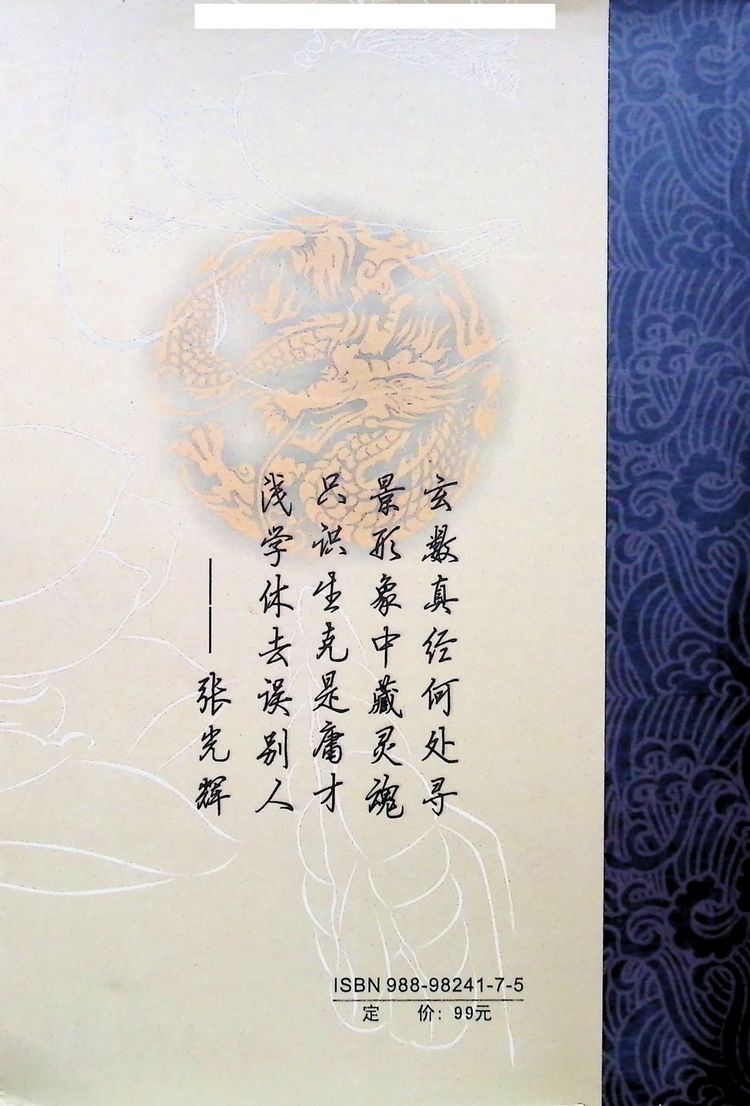 玄数真经何处寻
景形象中藏灵魂
只识生克是庸才
浅学休去误别人
——张光辉
ISBN 988-98241-7-5
定 价：99元